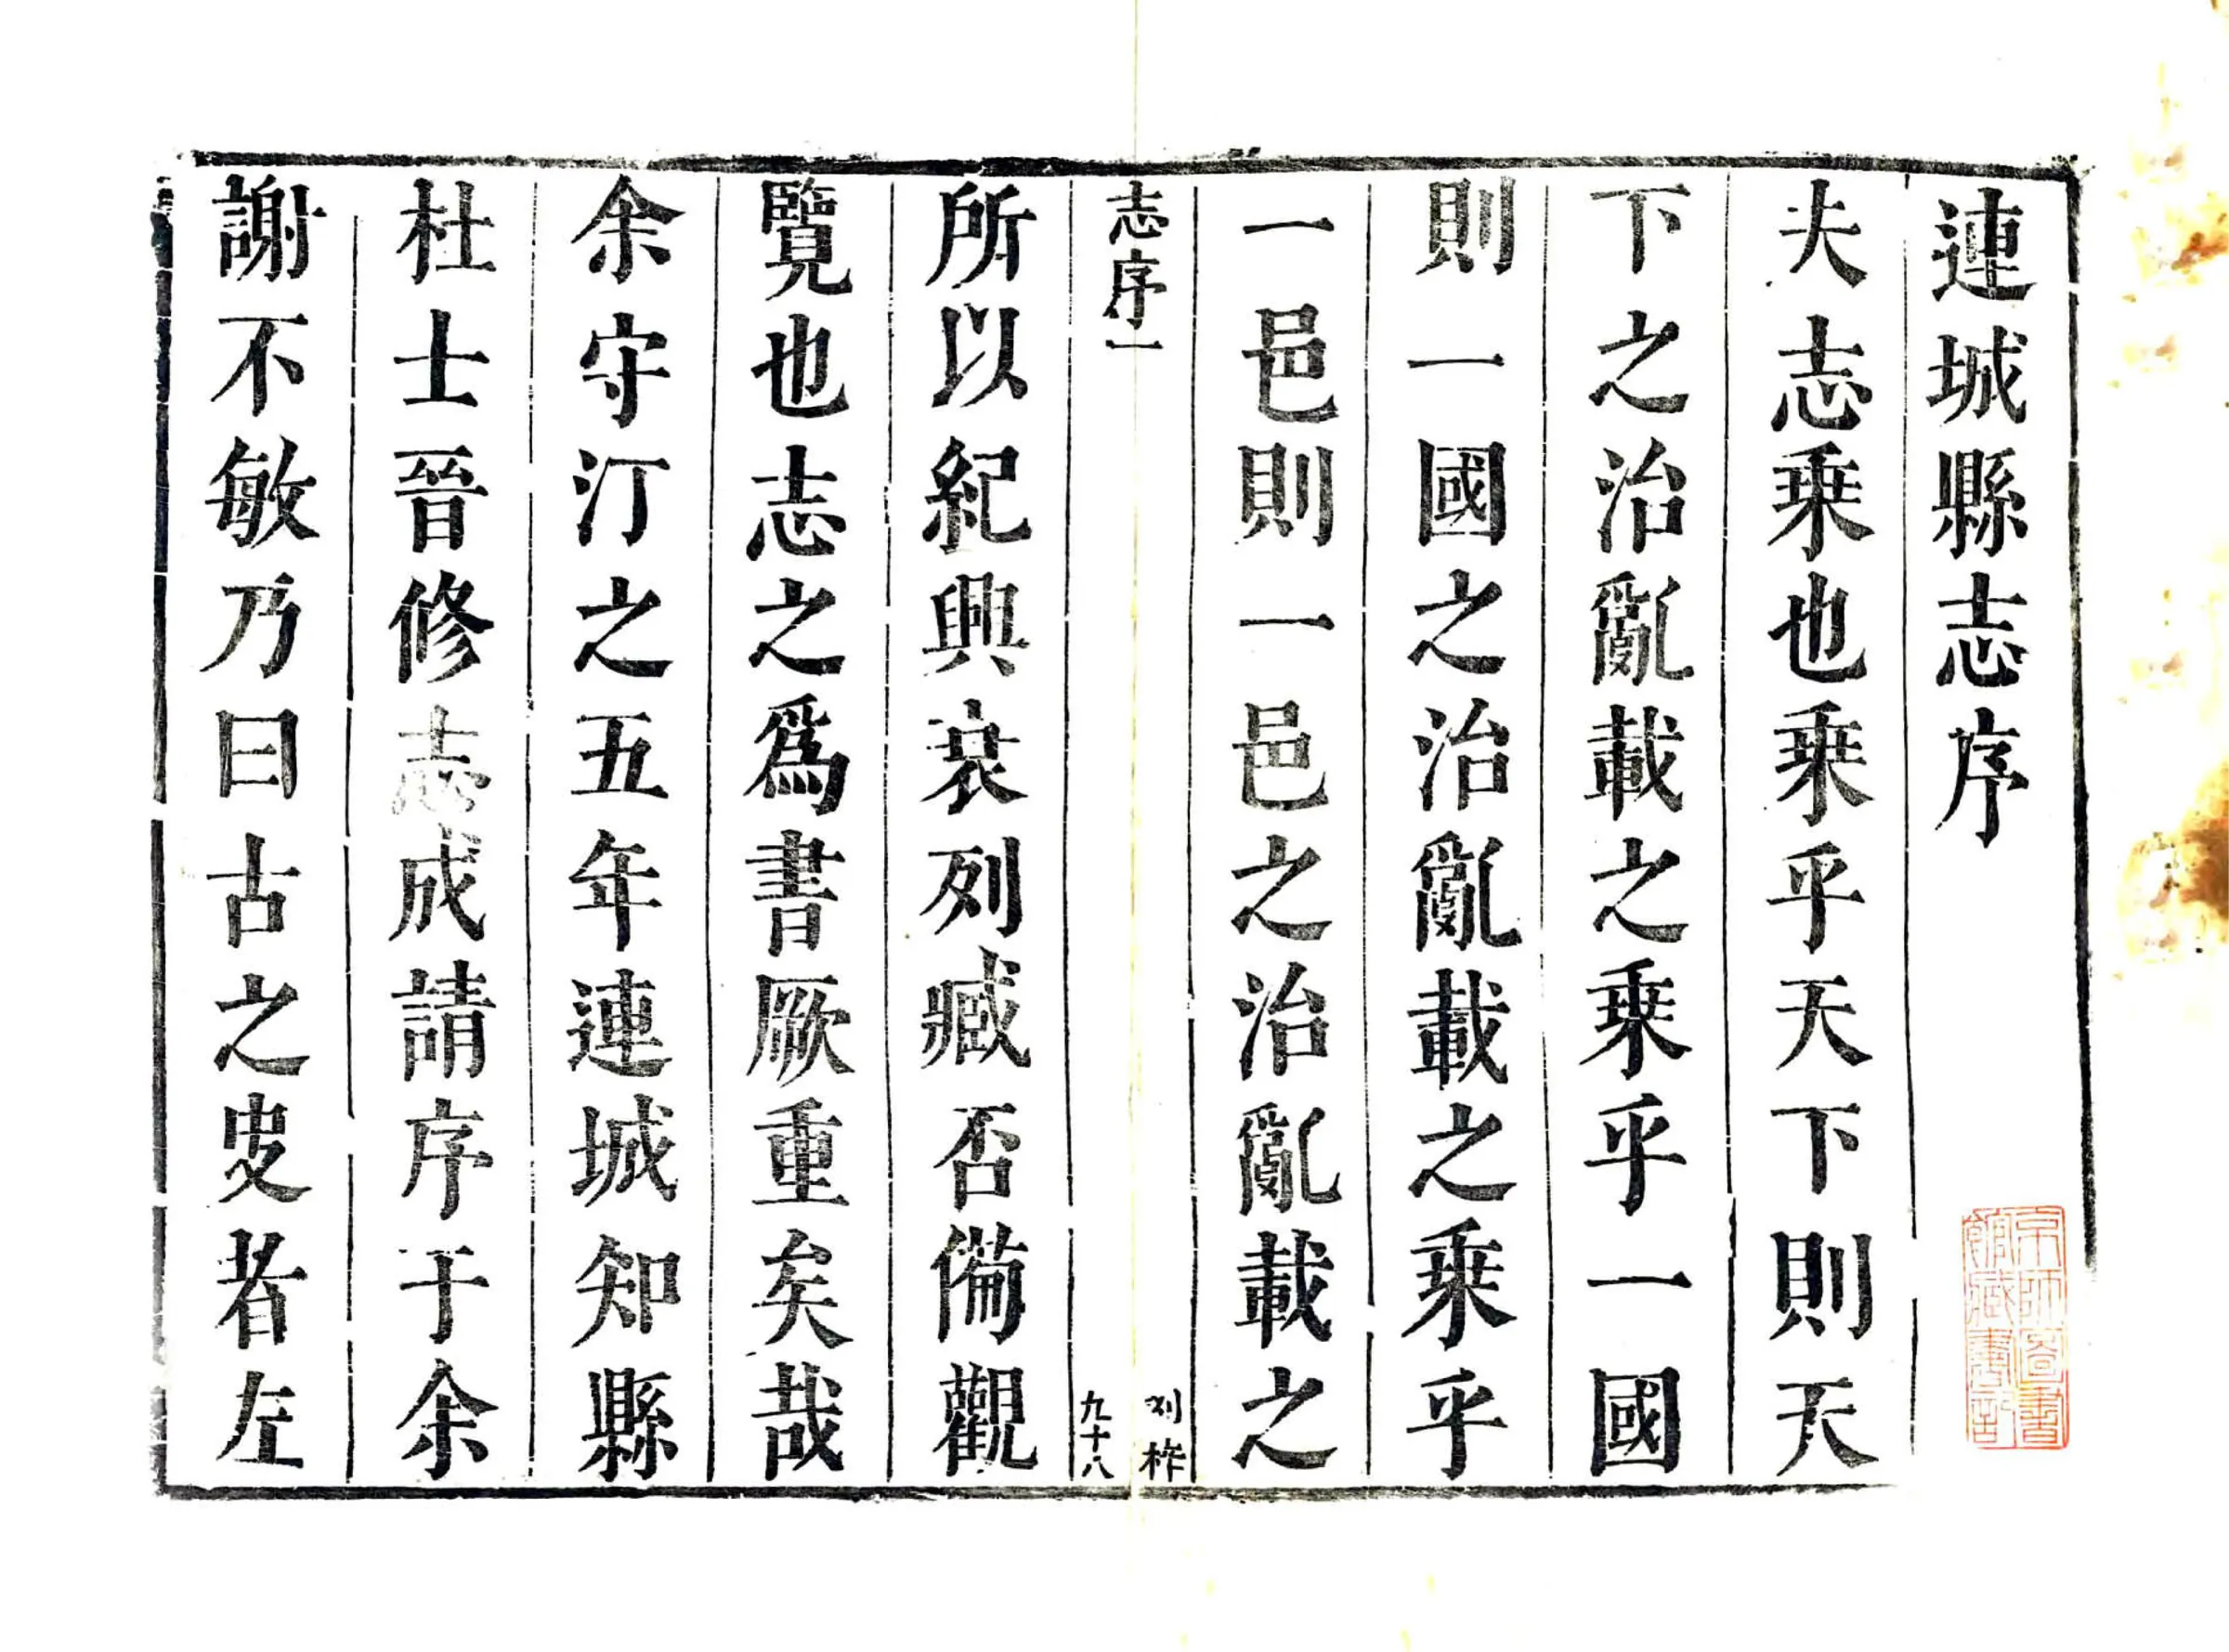 連城縣志序
夫志乗也乗乎天下則天
下之治亂載之乗乎一國
則一國之治亂載之乗乎
一邑則一邑之治亂載之
志序一
刘柞
九十八
所以紀興衰列臧否備觀
覽也志之爲書厥重矣哉
余守汀之五年連城知縣
杜士晉修志成請序于余
謝不敏乃曰古之史者左
京師圖書
館藏書記